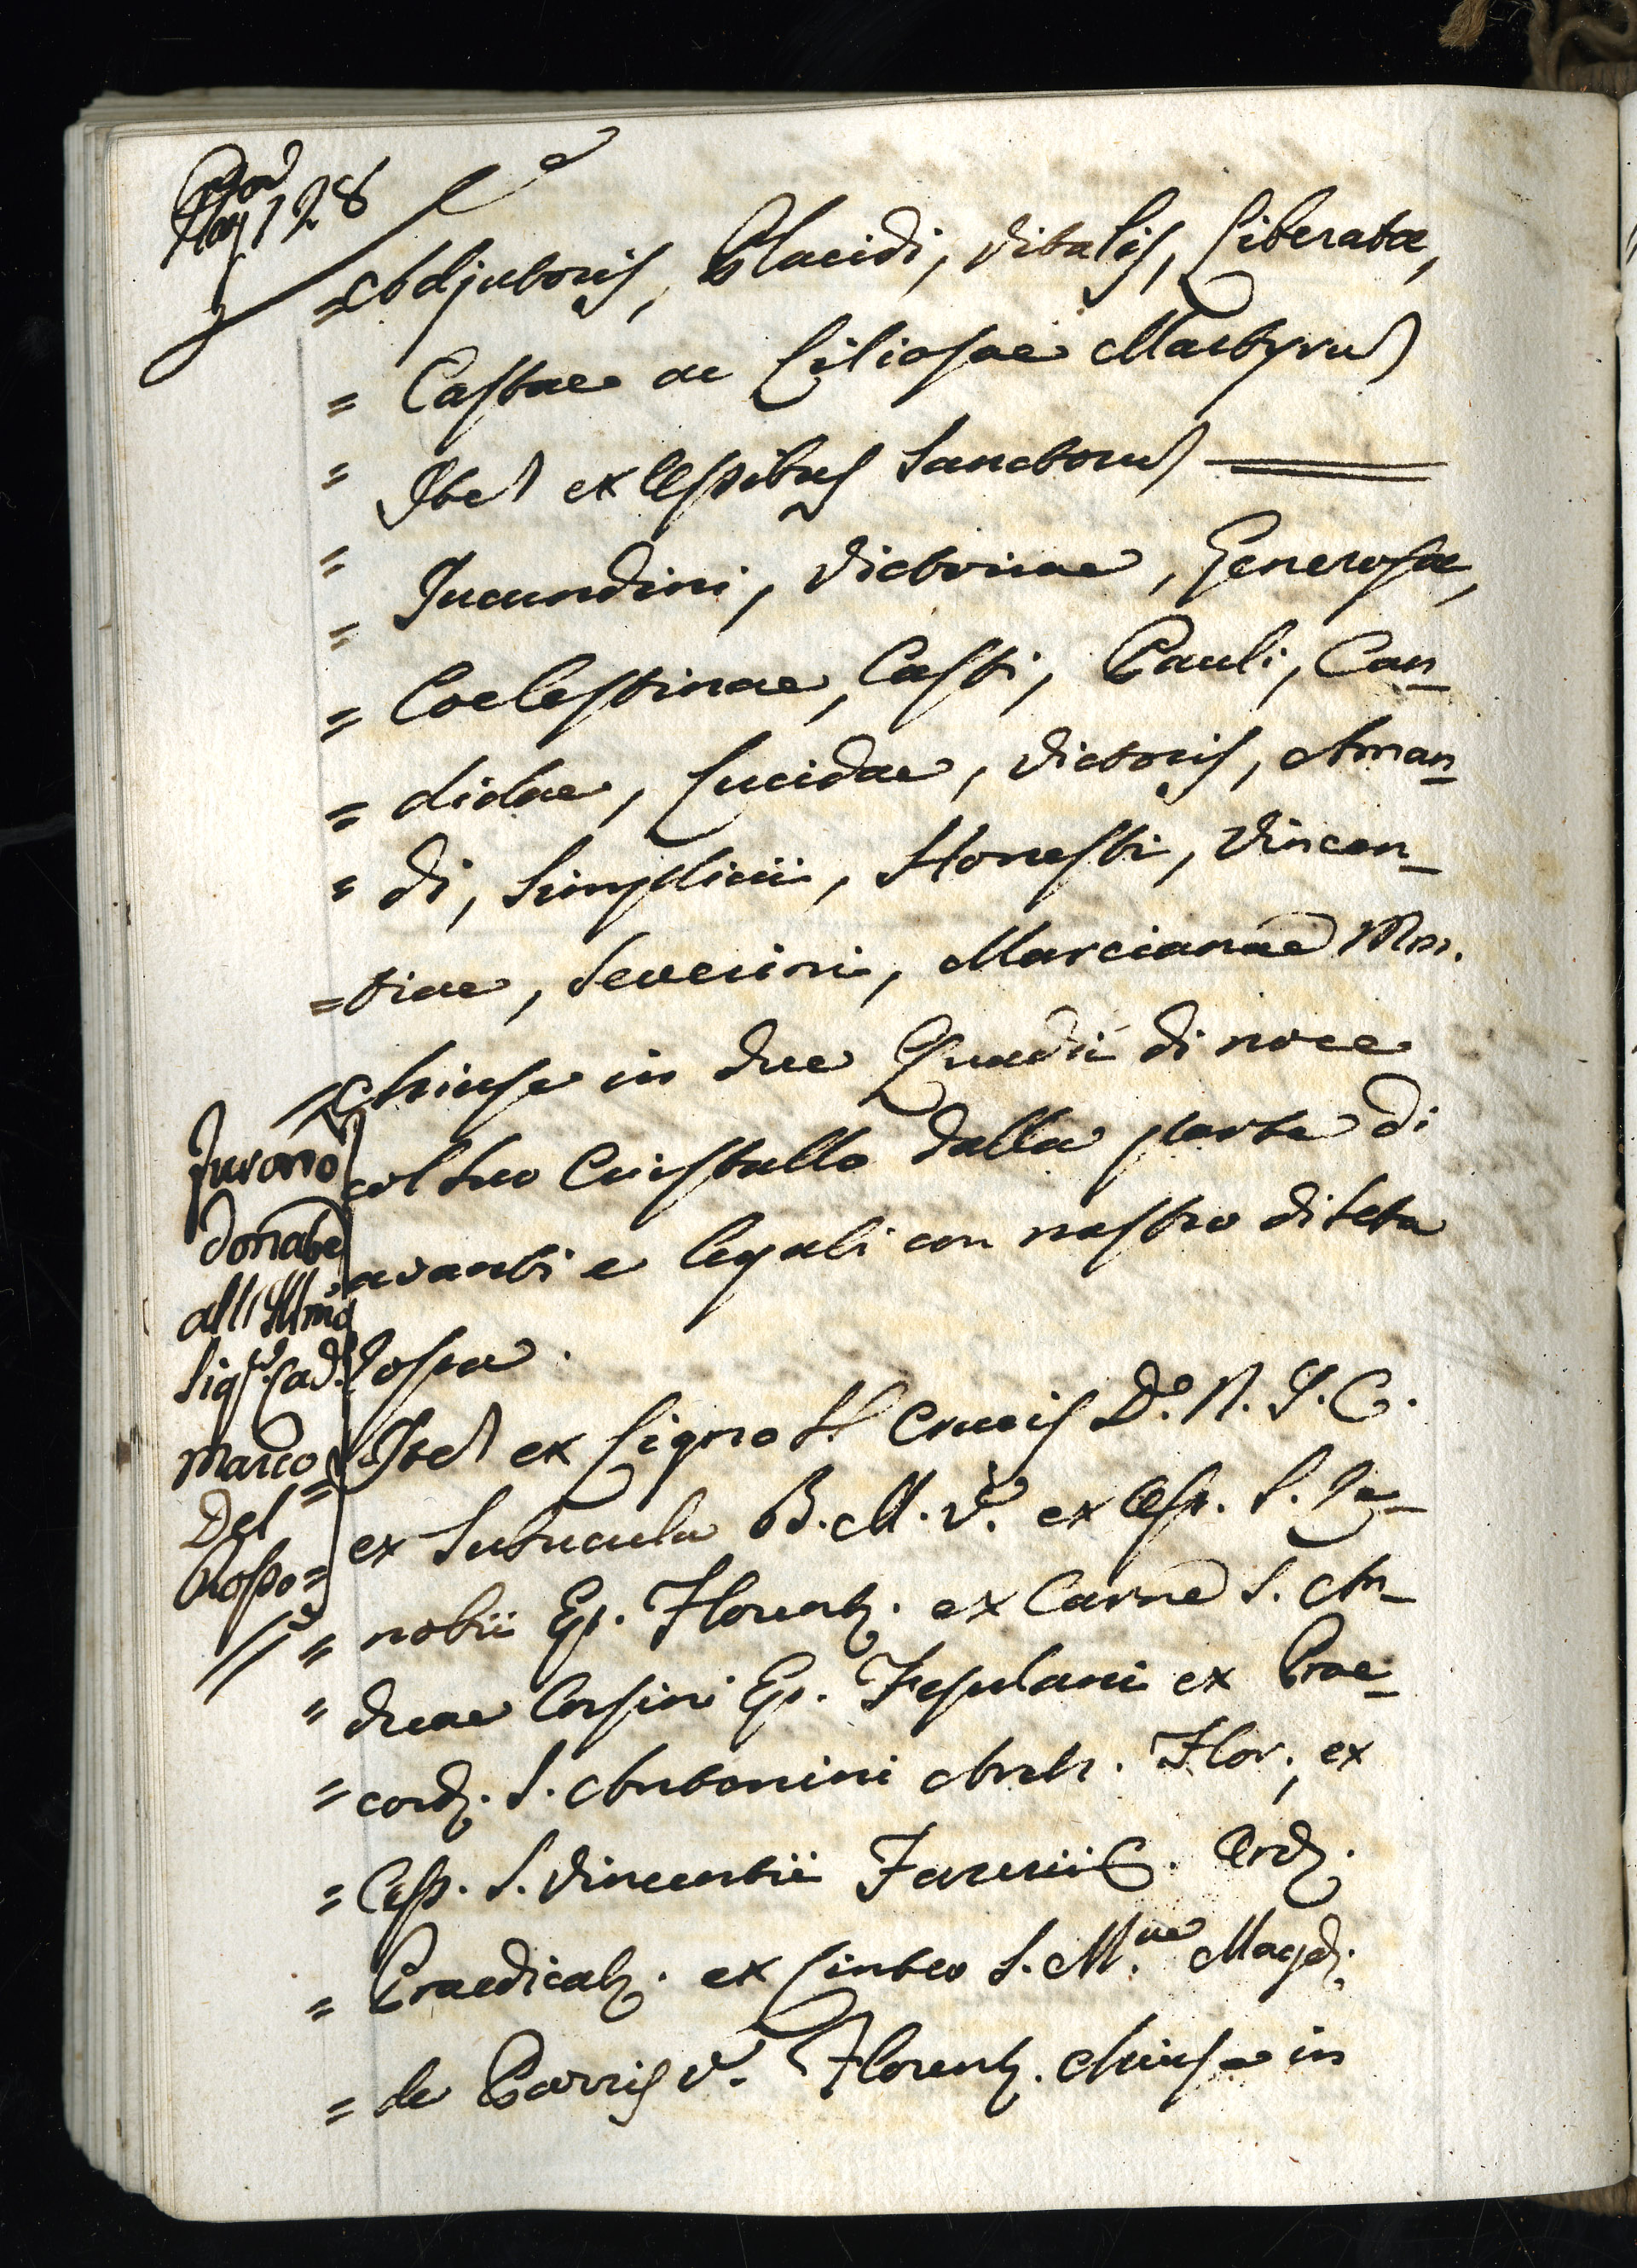 Pag 128
= Adjutoris, Placidi, Vitalis, Liberatæ,
= Castae ac Liliosae Martyrum
= Item ex Ossibus Sanctorum
= Jucundini, Victoriae, Generosæ,
= Coelestinae, Casti, Pauli, Can=
= didae, Lucidae, Victoris, Aman=
= di, Simplicii, Honesti, Vincen=
= tiae, Severini, Marcianae Mm.
chiuse in due Quadri di noce
col suo Cristallo dalla parte di
avanti e legati con nastro di seta
rossa.
Item ex Ligno SS. Crucis D. N. J. C.
ex Subucula B. M. V. ex Oss. S. Ze=
= nobii Ep. Florent. ex Carne S. An=
= dreae Corsini Ep. Fesulani ex Prae=
= cord. S. Antonini Arch. Flor., ex
= Oss. S. Vincentii Ferrerii C. Ord.
= Praedicat. ex Linteo S. M.ae Magd.
= de Pazzis V. Florent. chiuse in
Furono
donate
all Illmo
Sigr. Cad.
Marco
Del
Rosso